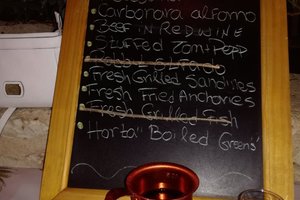 Carbonara alforno
Beef in Red wine
Stuffed Tom+Pepp
Fresh Grilled Sardines
Fresh Fried Anchovies
Fresh Grilled Fish
Horta "Boiled Greens"